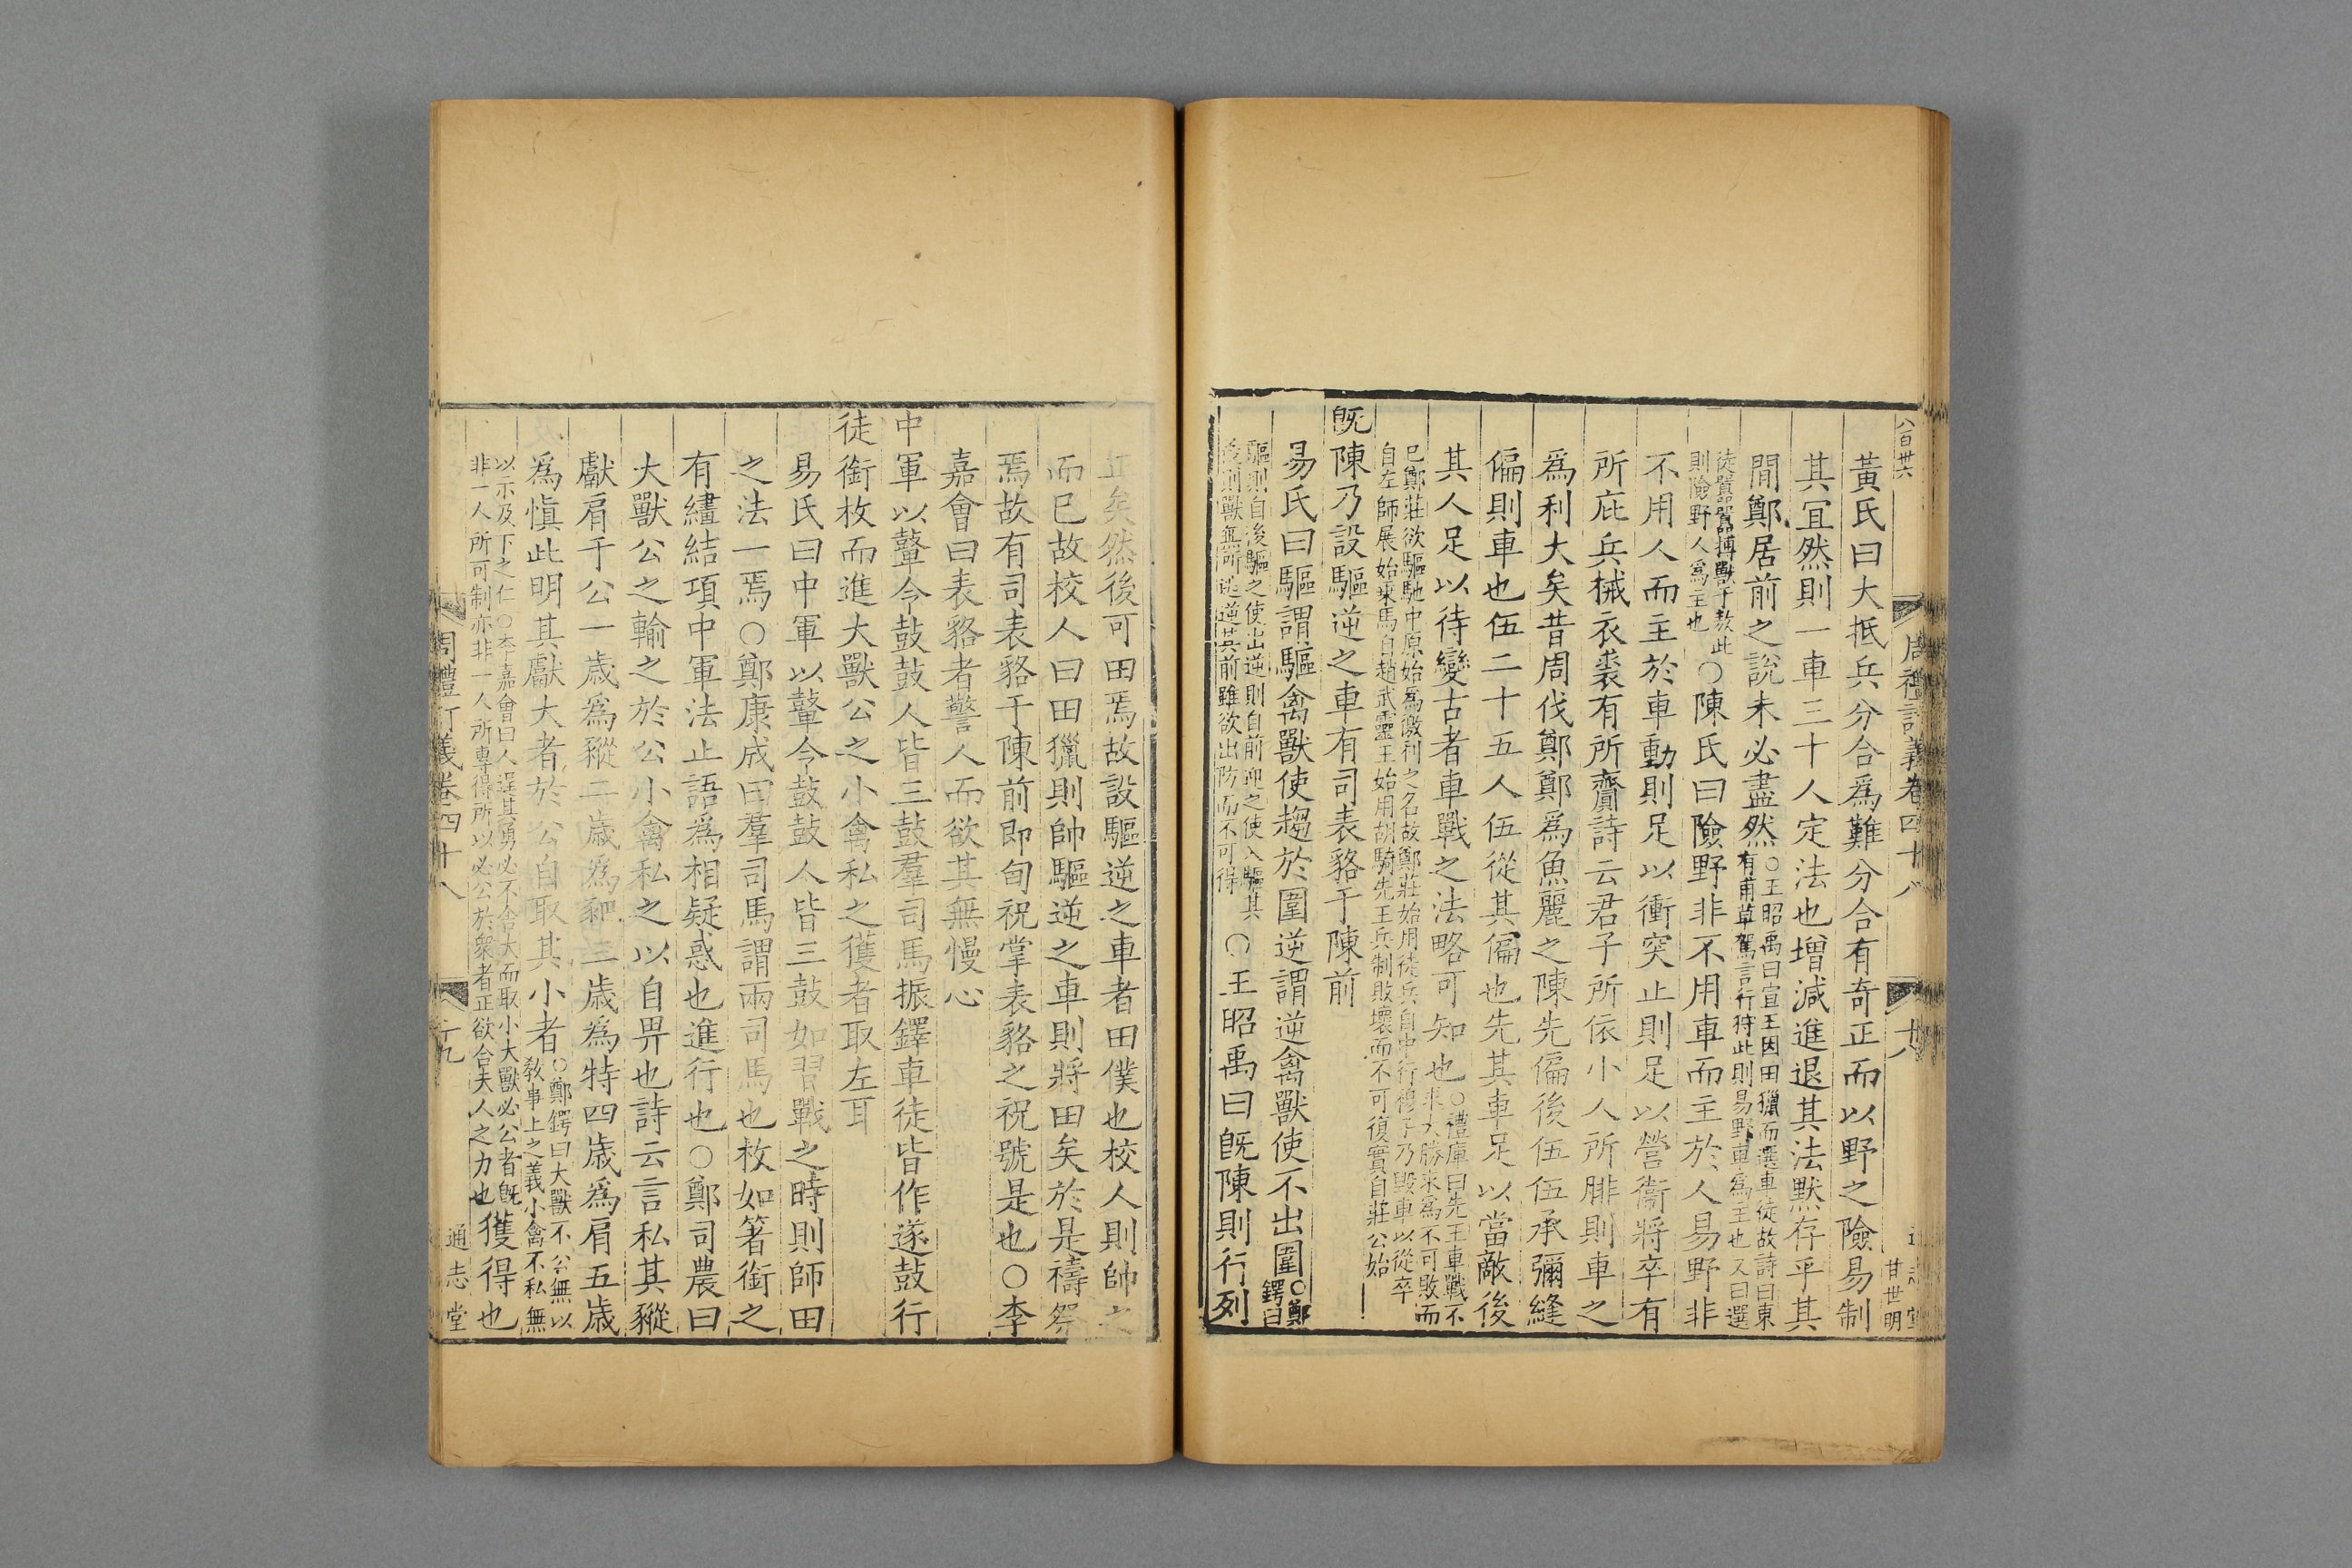 八百卅六
周禮訂義卷四十八
十八
甘世明
黃氏曰大抵兵分合爲難分合有奇正而以野之險易制
其冝然則一車三十人定法也增減進退其法默存乎其
間鄭居前之說未必盡然○王昭禹曰宣王因田獵而選車徒故詩曰東
有甫草駕言行狩此則易野車爲主也又曰選
徒囂囂搏獸于敖此
則險野人爲主也○陳氏曰險野非不用車而主於人易野非
不用人而主於車動則足以衝突止則足以營衞將卒有
所庇兵械衣裘有所齎詩云君子所依小人所腓則車之
爲利大矣昔周伐鄭鄭爲魚麗之陳先偏後伍伍承彌縫
偏則車也伍二十五人伍從其偏也先其車足以當敵後
其人足以待變古者車戰之法略可知也○禮庫曰先王車戰不
求大勝求爲不可敗而
已鄭莊欲驅馳中原始爲徼利之名故鄭莊始用徒兵自中行穆子乃毀車以從卒
自左師展始乘馬自趙武靈王始用胡騎先王兵制敗壞而不可復實自莊公始
旣陳乃設驅逆之車有司表貉于陳前
易氏曰驅謂驅禽獸使趨於圍逆謂逆禽獸使不出圍○鄭
鍔曰
驅則自後驅之使出逆則自前迎之使入驅其
後則獸無所逃逆其前雖欲出防而不可得○王昭禹曰旣陳則行列
正矣然後可田焉故設驅逆之車者田僕也校人則帥之
而已故校人曰田獵則帥驅逆之車則將田矣於是禱祭
焉故有司表貉于陳前即甸祝掌表貉之祝號是也○李
嘉會曰表貉者警人而欲其無慢心
中軍以鼙令鼓鼓人皆三鼓羣司馬振鐸車徒皆作遂鼓行
徒銜枚而進大獸公之小禽私之獲者取左耳
易氏曰中軍以鼙令鼓鼓人皆三鼓如習戰之時則師田
之法一焉○鄭康成曰羣司馬謂兩司馬也枚如箸銜之
有繣結項中軍法止語爲相疑惑也進行也○鄭司農曰
大獸公之輸之於公小禽私之以自畀也詩云言私其豵
獻肩于公一歲爲豵二歲爲豝三歲爲特四歲爲肩五歲
爲愼此明其獻大者於公自取其小者○鄭鍔曰大獸不公無以
敎事上之義小禽不私無
以示及下之仁○李嘉會曰人逞其勇必不舍大而取小大獸必公者旣
非一人所可制亦非一人所專得所以必公於衆者正欲合夫人之力也獲得也
周禮訂義卷四十八
十九
通志堂